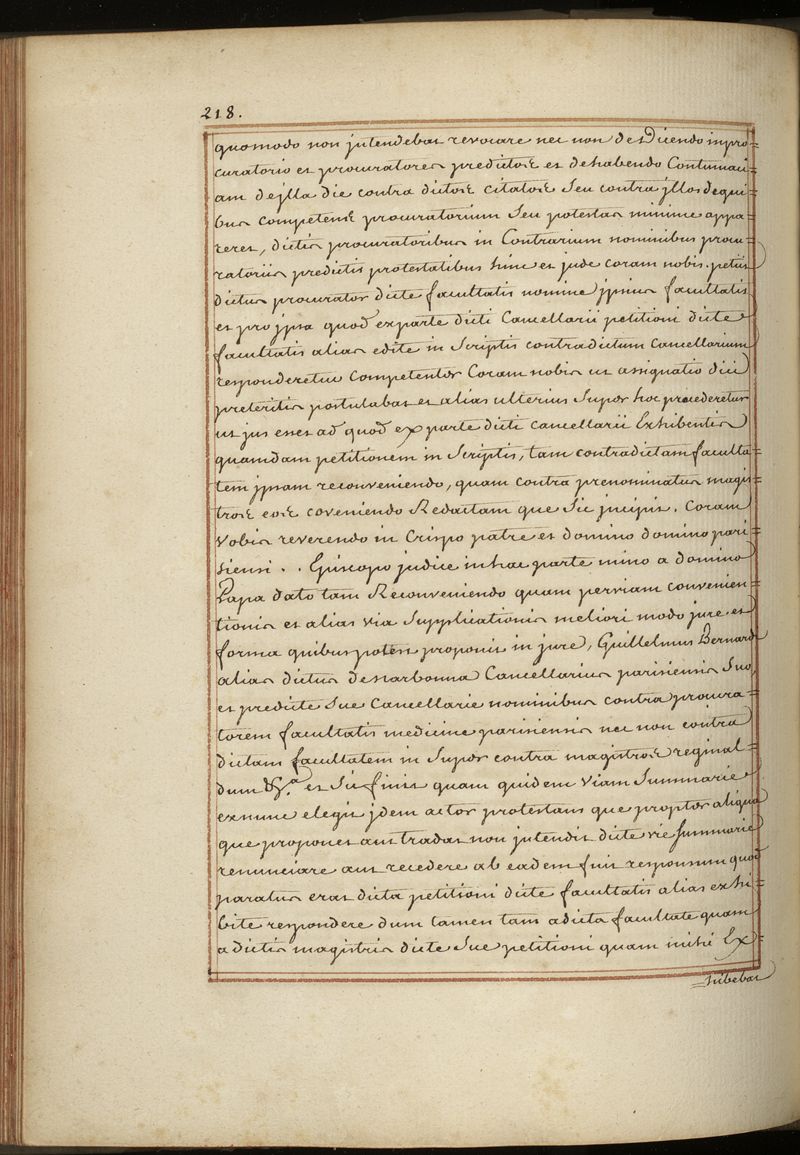 218.
quomodo non jntendebat revocare nec non de et Dicendo in pro=
curatorio et procuratores predictos et de habendo Contumaci=
am dejlla die contra dictos citatos Seu contra jllos de qui=
bus competens procuratorium Seu potestas minime appa=
reret, dictis procuratoribus in Contrarium nominibus procu=
ratoriis predictis protestatibus hinc et jnde coram nobis. petiit
dictus procurator dicte facultatis nomine jpsius facultatis
et pro jpsa quod ex parte dicti Cancellarii petitioni dicte
facultatis alias edite in Scriptis contra dictum Cancellarium
responderetur Competenter Coram nobis ut assignatio diei
preteritis postulabat et alias ulterius Super hoc procederetur
ut jus esset ad quod ex parte dicti cancellarii Exhibentis
quamdam petitionem in Scriptis, tam contra dictam faculta=
tem jpsam reconveniendo, quam contra prenominatus magis=
tros eos coveniendo Redactam que Sic jncipit. Coram
Vobis reverendo in Cripso patre et domino domino pari=
siensi . . Episcopo judice in hac parte mino a domino
Papa dato tam Reconveniendo quam per viam convenien=
tionis et alias via Supplicationis meliori modo jure et
forma quibus potest proponit in jure, Guillelmus Bernardi
alias dictus de Narbonna Cancellarius parisiensis Suo,
et predicte Sue Cancellarie nominibus contra procura=
torem facultatis medicine parisiensis nec non contra
dictam facultatem in Super contra magistros reginal=
dum &c.a et Sic finit quam quidem Viam Summarie
ex nunc elegit jdem actor protestans que propter aliqua
que proponet aut tradat non jntendit dicte vie summarie
renunciare aut recedere ab eadem fuit responsum quod
paratus erat dicta petitioni dicte facultatis alias exhi=
bite respondere dum tamen tam a dicta facultate quam
a dictis magistris dicte Sue petitioni quam mihi Ex=
hibebat